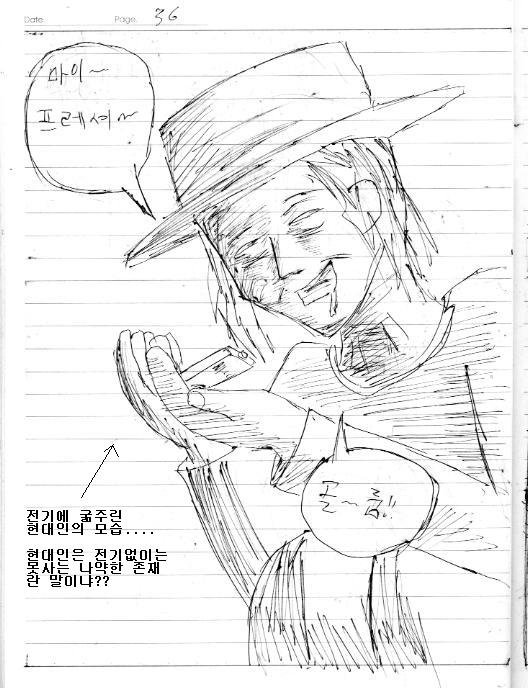 Date
Page. 36
마이~
프레셔~
꼴~룸!!
전기에 굶주린
현대인의 모습....
현대인은 전기없이는
못사는 나약한 존재
란 말이냐??